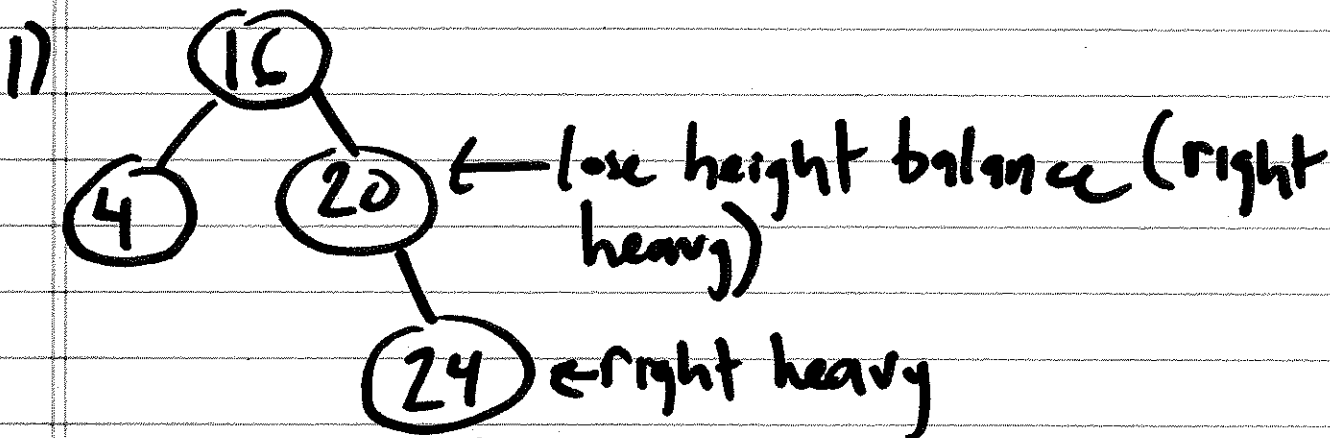 1)
16
4
20 ← lose height balance (right
heavy)
24 ← right heavy